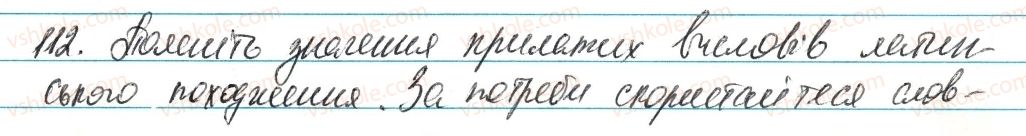 112. Поясніть значення крилатих висловів латин-
ського походження. За потреби скористайтеся слов-